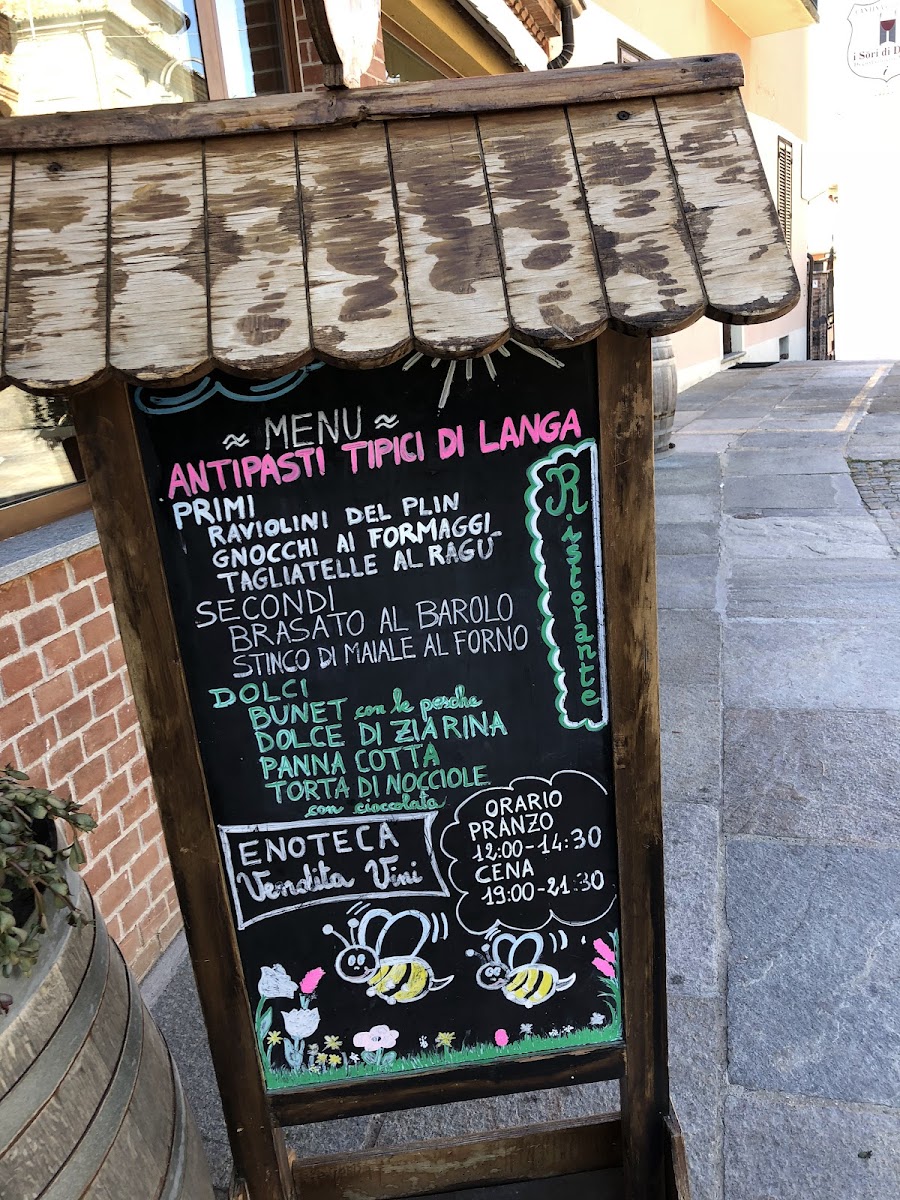 i Söri di D
≈ MENU ≈
ANTIPASTI TIPICI DI LANGA
PRIMI
RAVIOLINI DEL PLIN
GNOCCHI AI FORMAGGI
TAGLIATELLE AL RAGU'
SECONDI
BRASATO AL BAROLO
STINCO DI MAIALE AL FORNO
Ristorante
DOLCI
BUNET con le pesche
DOLCE DI ZIA RINA
PANNA COTTA
TORTA DI NOCCIOLE
con cioccolata
ENOTECA
Vendita Vini
ORARIO
PRANZO
12:00-14:30
CENA
19:00-21:30